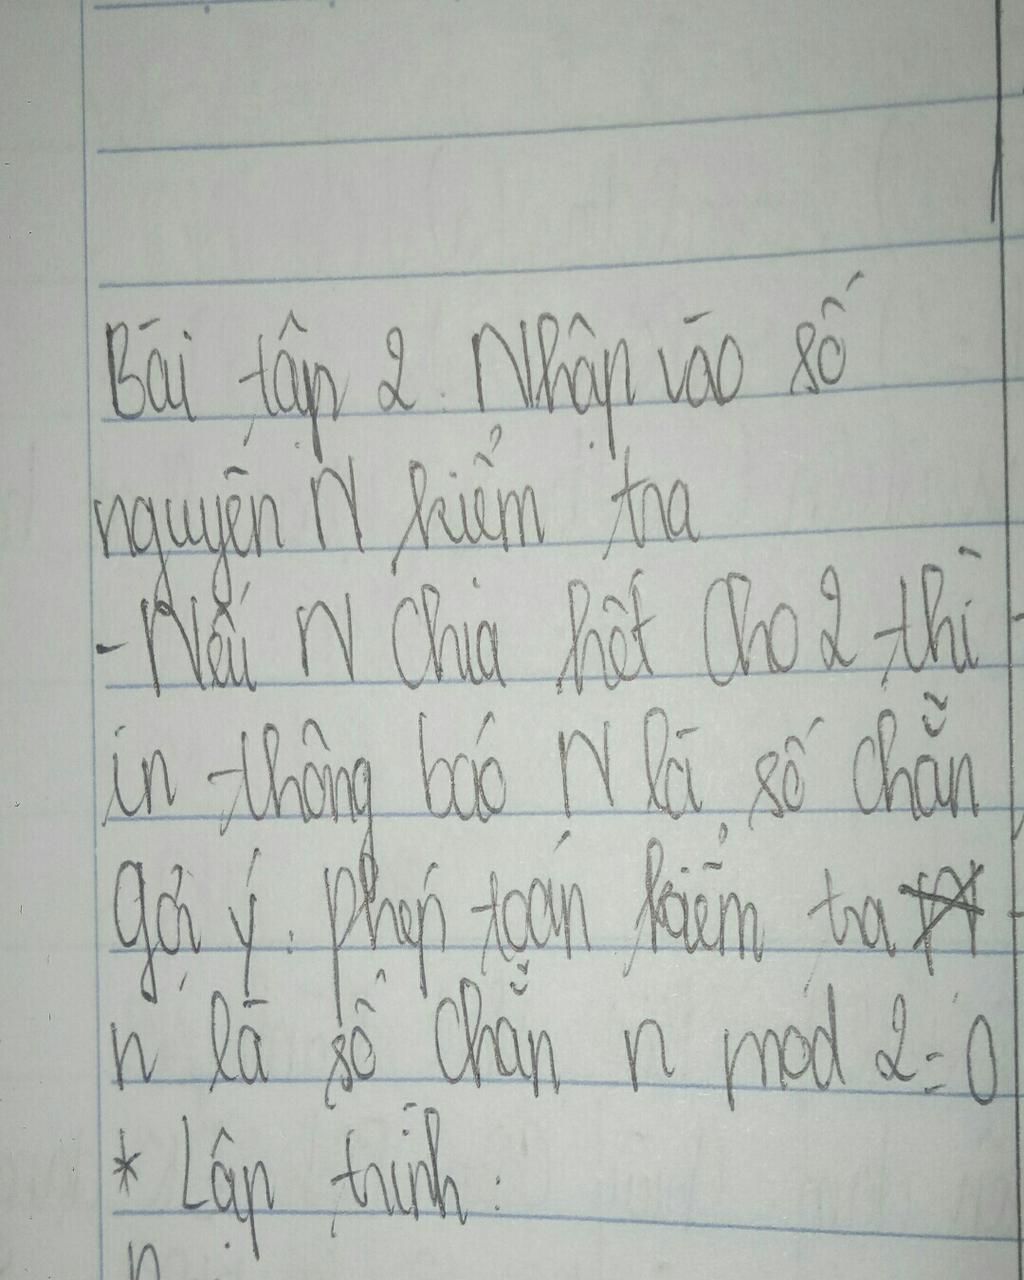 Bài tập 2. Nhập vào số
nguyên N kiểm tra
- Nếu N chia hết cho 2 thì
in thông báo N là số chẵn
gợi ý: phép toán kiểm tra
n là số chẵn n mod 2 = 0
* Lập trình: